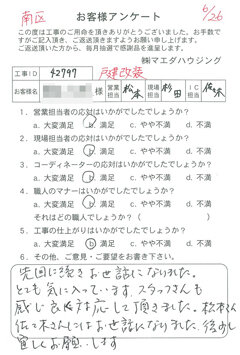 南区
お客様アンケート
6/26
この度は工事のご用命を頂きありがとうございました。お手数で
すがご記入頂き、ご返送頂きますようお願い申し上げます。
ご返送頂いた方から、毎月抽選で感謝品を進呈します。
㈱マエダハウジング
工事ID 42797 戸建改装
お客様名 様 営業担当 松本 現場担当 杉田 IC担当 佐々木
1．営業担当者の応対はいかがでしたでしょうか？
a. 大変満足 b. 満足 c. やや不満 d. 不満
2．現場担当者の応対はいかがでしたでしょうか？
a. 大変満足 b. 満足 c. やや不満 d. 不満
3．コーディネーターの応対はいかがでしたでしょうか？
a. 大変満足 b. 満足 c. やや不満 d. 不満
4．職人のマナーはいかがでしたでしょうか？
a. 大変満足 b. 満足 c. やや不満 d. 不満
それはどの職人でしょうか？（　　）
5．工事の仕上がりはいかがでしたでしょうか？
a. 大変満足 b. 満足 c. やや不満 d. 不満
6．その他、ご意見・ご要望をお書き下さい。
先回に続きお世話になりました。
とても気に入っています。スタッフさんも
感じ良く対応して頂きました。松本さん
佐々木さんにはお世話になりました。後
宜しくお願いします